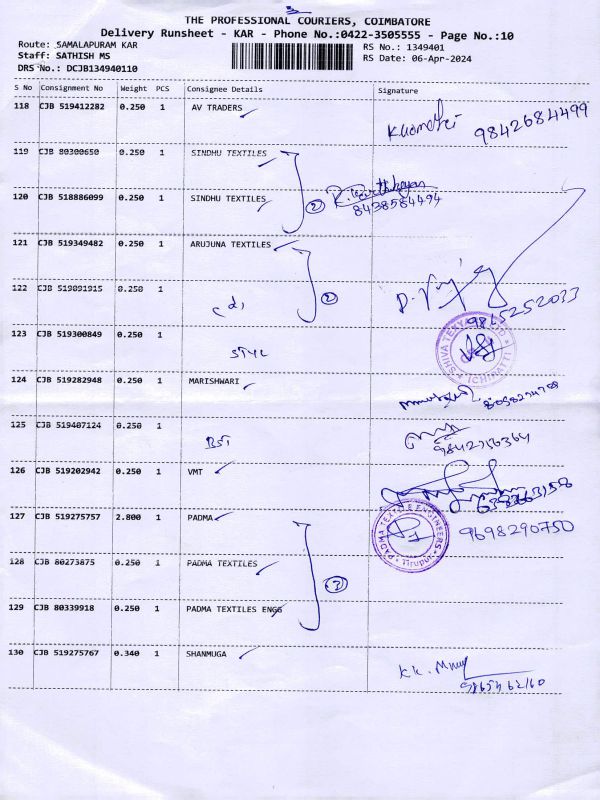 THE PROFESSIONAL COURIERS, COIMBATORE
Delivery Runsheet - KAR - Phone No.:0422-3505555 - Page No.:10
Route: SAMALAPURAM KAR
RS No.: 1349401
Staff: SATHISH MS
RS Date: 06-Apr-2024
DRS No.: DCJB134940110
S No Consignment No Weight PCS Consignee Details Signature
118 CJB 519412282 0.250 1 AV TRADERS
9842684499
119 CJB 80300650 0.250 1 SINDHU TEXTILES
120 CJB 518886099 0.250 1 SINDHU TEXTILES 2 R. Karthikeyan
8438584494
121 CJB 519349482 0.250 1 ARUJUNA TEXTILES
122 CJB 519091915 0.250 1 2
9865252033
123 CJB 519300849 0.250 1
124 CJB 519282948 0.250 1 MARISHWARI
125 CJB 519407124 0.250 1
9842716364
126 CJB 519202942 0.250 1 VMT
127 CJB 519275757 2.800 1 PADMA PADMA TEXTILE ENGINEERS Tirupur 9698290750
128 CJB 80273875 0.250 1 PADMA TEXTILES
129 CJB 80339918 0.250 1 PADMA TEXTILES ENGG
130 CJB 519275767 0.340 1 SHANMUGA